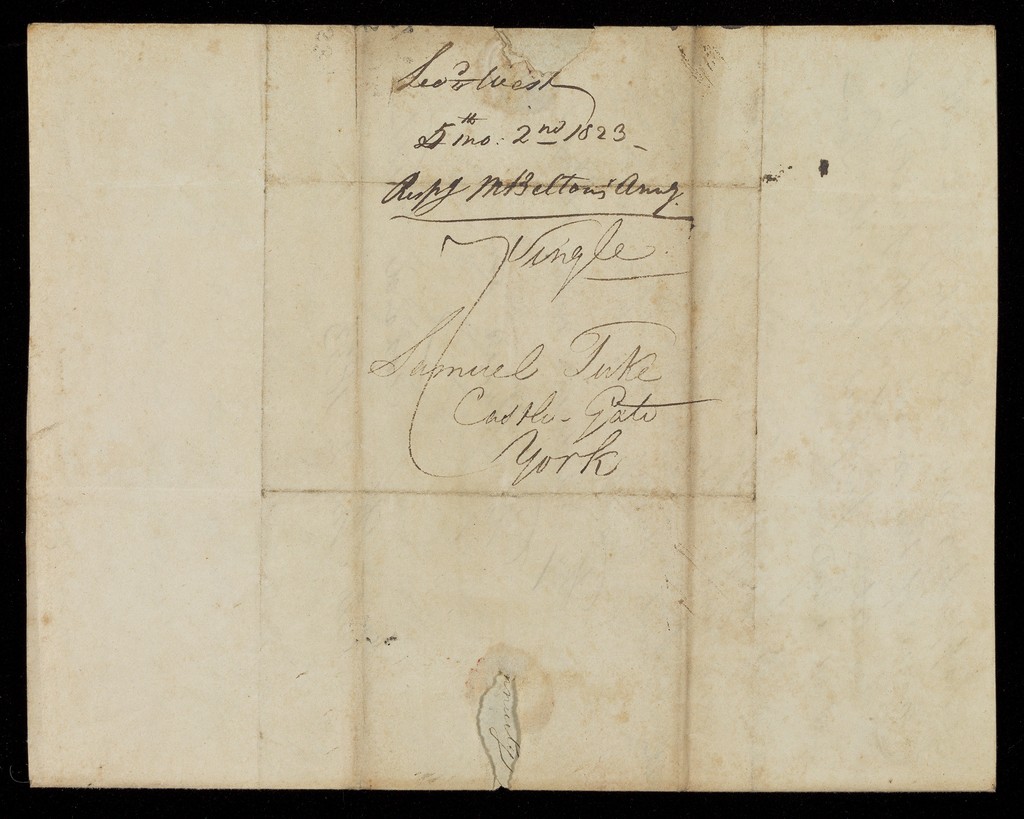 Leod. West
5th mo: 2nd 1823
Respg M Belton's
Single
Samuel Tuke
Castle-Gate
York